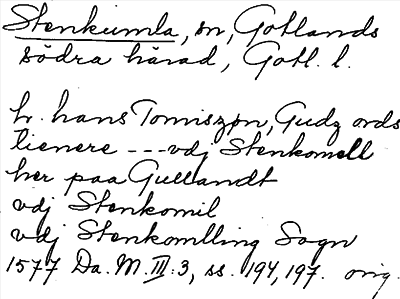 Stenkumla, sn, Gotlands
södra härad, Gotl. l.
hr. hans Tomiszøn, Gudz ords
tienere --- vdj Stenkomell
her paa Gullandt
vdj Stenkomil
vdj Stenkomlling Sogn
1577 Da. M. III:3, ss. 194, 197. orig.